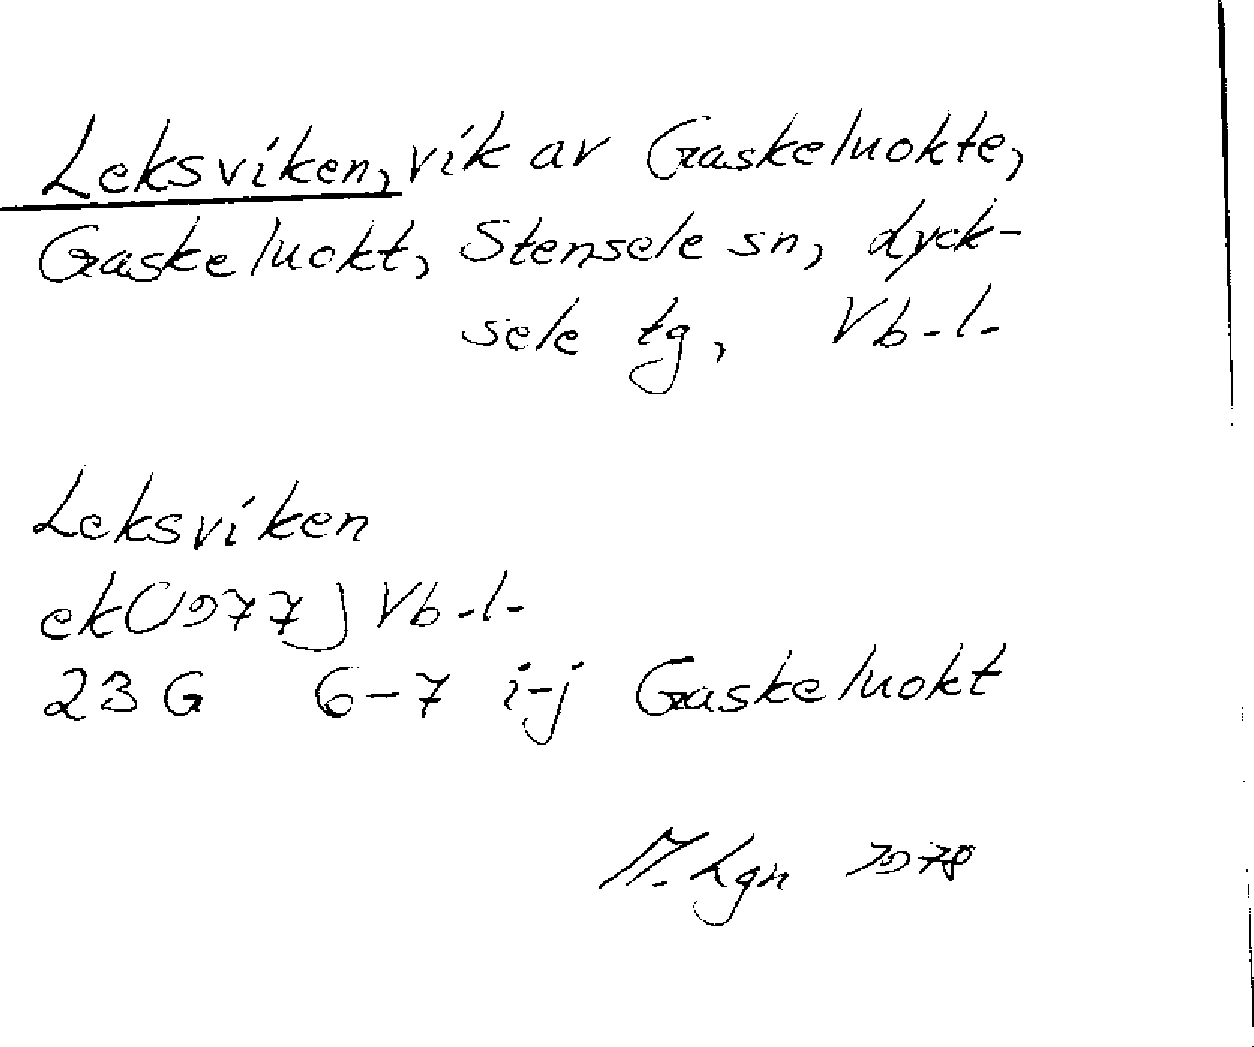 Leksviken, vik av Gaskeluokte,
Gaskeluokt, Stensele sn, Lyck-
sele tg, Vb-l-
Leksviken
ek(1977) Vb-l-
23 G 6-7 i-j Gaskeluokt
M. Lgn 1978